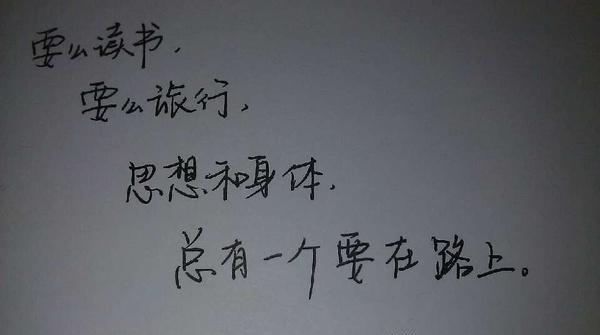 要么读书,
要么旅行,
思想和身体,
总有一个要在路上。